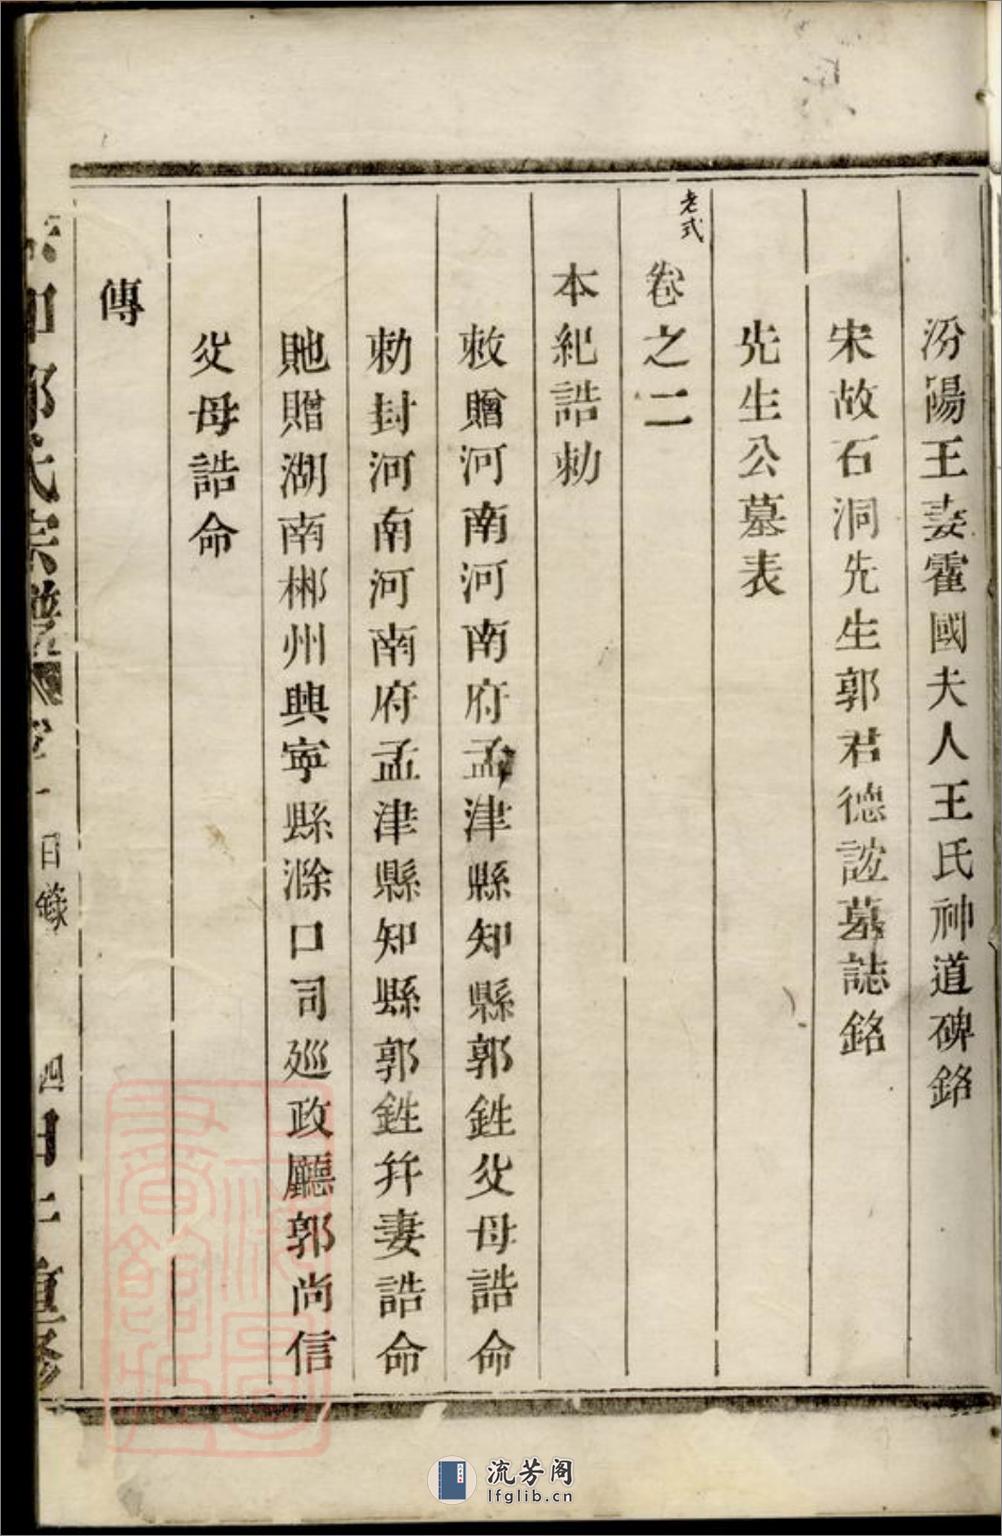 汾陽王妻霍國夫人王氏神道碑銘
宋故石洞先生郭君德誼墓誌銘
先生公墓表
老式
卷之二
本紀誥勅
敕贈河南河南府孟津縣知縣郭鉎父母誥命
勅封河南河南府孟津縣知縣郭鉎并妻誥命
貤贈湖南郴州興寧縣滁口司廵政廳郭尚信
父母誥命
傳
郭氏宗譜
目錄
四
重修
流芳阁
lfglib.cn